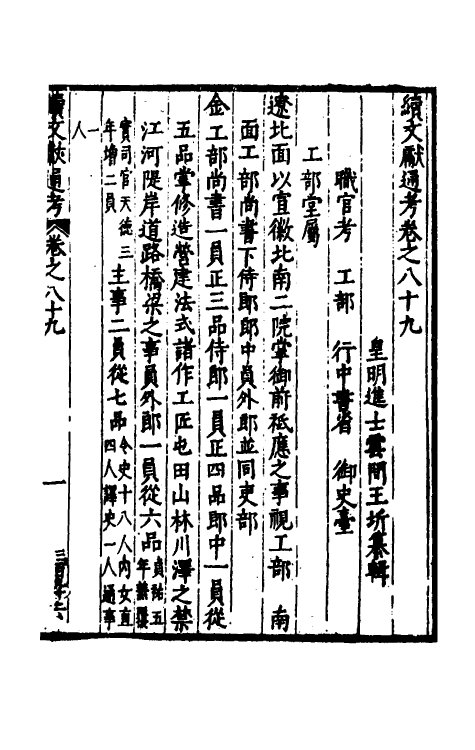 續文獻通考卷之八十九
皇明進士雲間王圻纂輯
職官考 工部 行中書省 御史臺
工部堂屬
遼北面以宣徽北南二院掌御前祗應之事視工部 南
面工部尚書下侍郎郎中員外郎並同吏部
金工部尚書一員正三品侍郎一員正四品郎中一員從
五品掌修造營建法式諸作工匠屯田山林川澤之禁
江河隄岸道路橋梁之事員外郎一員從六品貞祐五
年兼
實司官天德三
年增二員主事二員從七品令史十八人內女直
四人譯史一人通事
一人
續文獻通考 卷之八十九 一